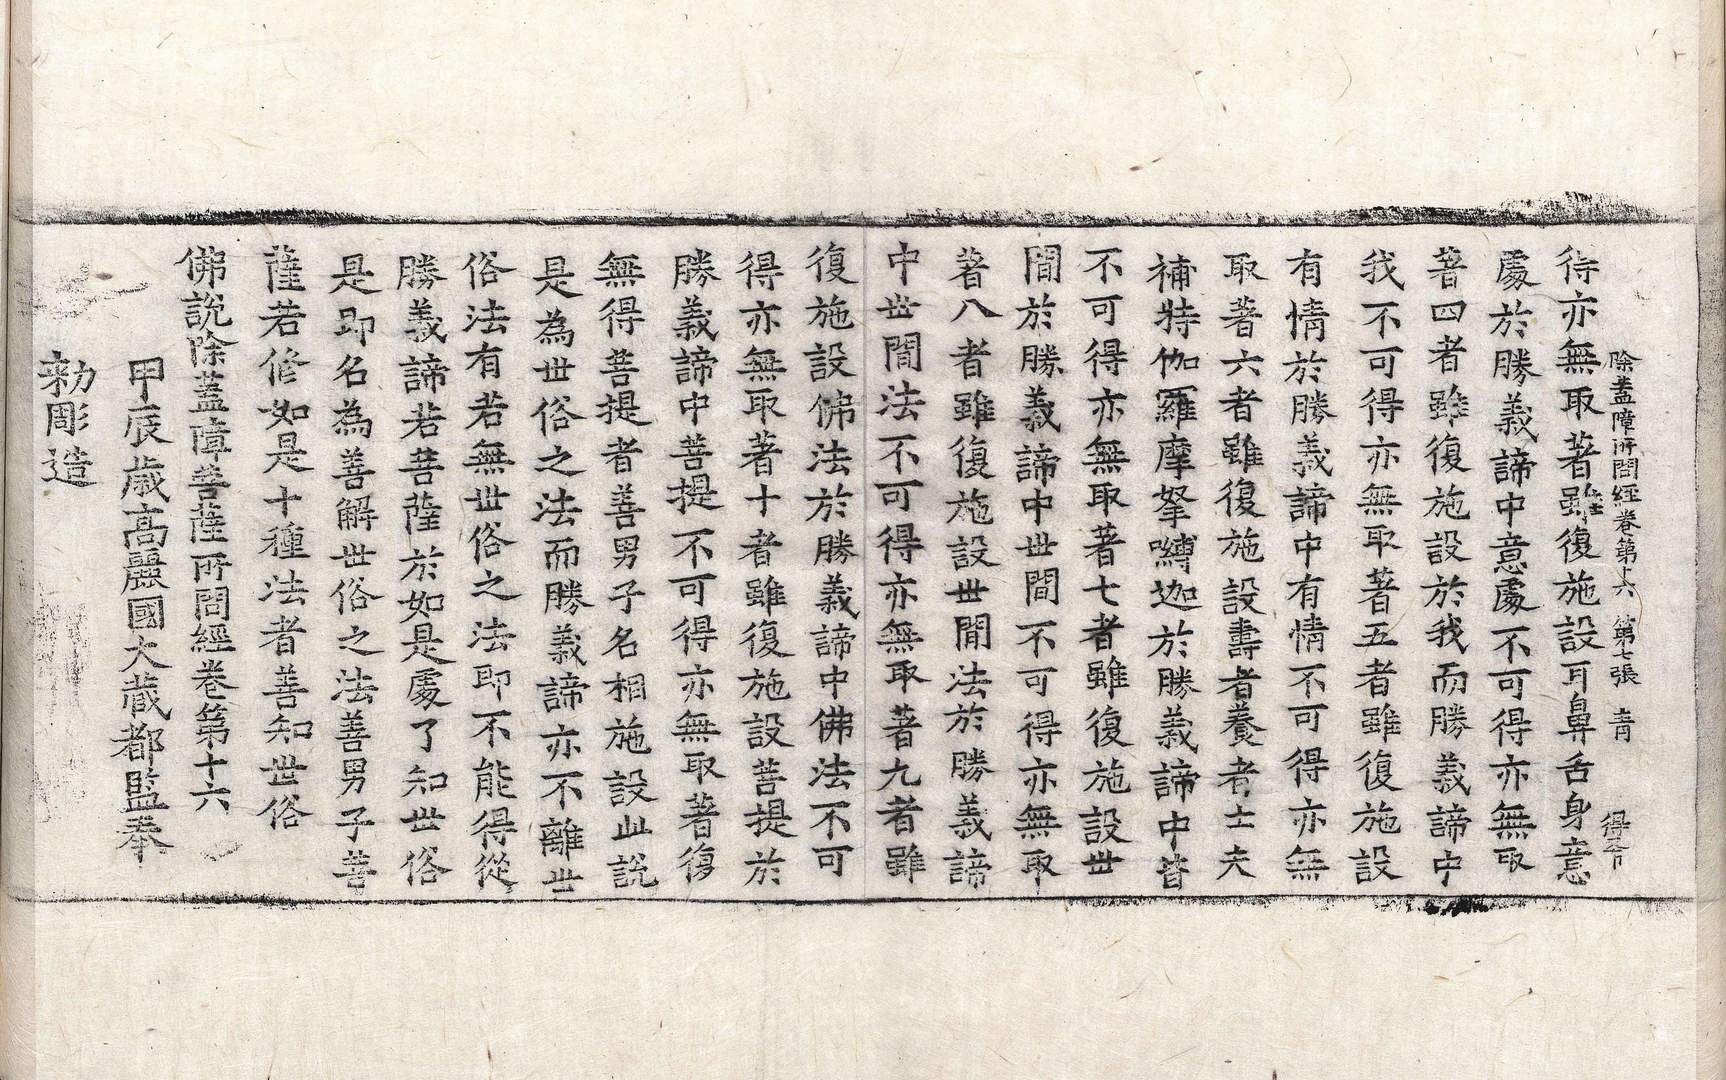 除蓋障所問經卷第十六 第七張 青 得
得亦無取著雖復施設耳鼻舌身意
處於勝義諦中意處不可得亦無取
著四者雖復施設於我而勝義諦中
我不可得亦無取著五者雖復施設
有情於勝義諦中有情不可得亦無
取著六者雖復施設壽者養者士夫
補特伽羅摩拏嚩迦於勝義諦中皆
不可得亦無取著七者雖復施設世
間於勝義諦中世間不可得亦無取
著八者雖復施設世間法於勝義諦
中世間法不可得亦無取著九者雖
復施設佛法於勝義諦中佛法不可
得亦無取著十者雖復施設菩提於
勝義諦中菩提不可得亦無取著復
無得菩提者善男子名相施設此說
是為世俗之法而勝義諦亦不離世
俗法有若無世俗之法即不能得從
勝義諦若菩薩於如是處了知世俗
是即名為善解世俗之法善男子菩
薩若修如是十種法者善知世俗
佛說除蓋障菩薩所問經卷第十六
甲辰歲高麗國大藏都監奉
勅彫造